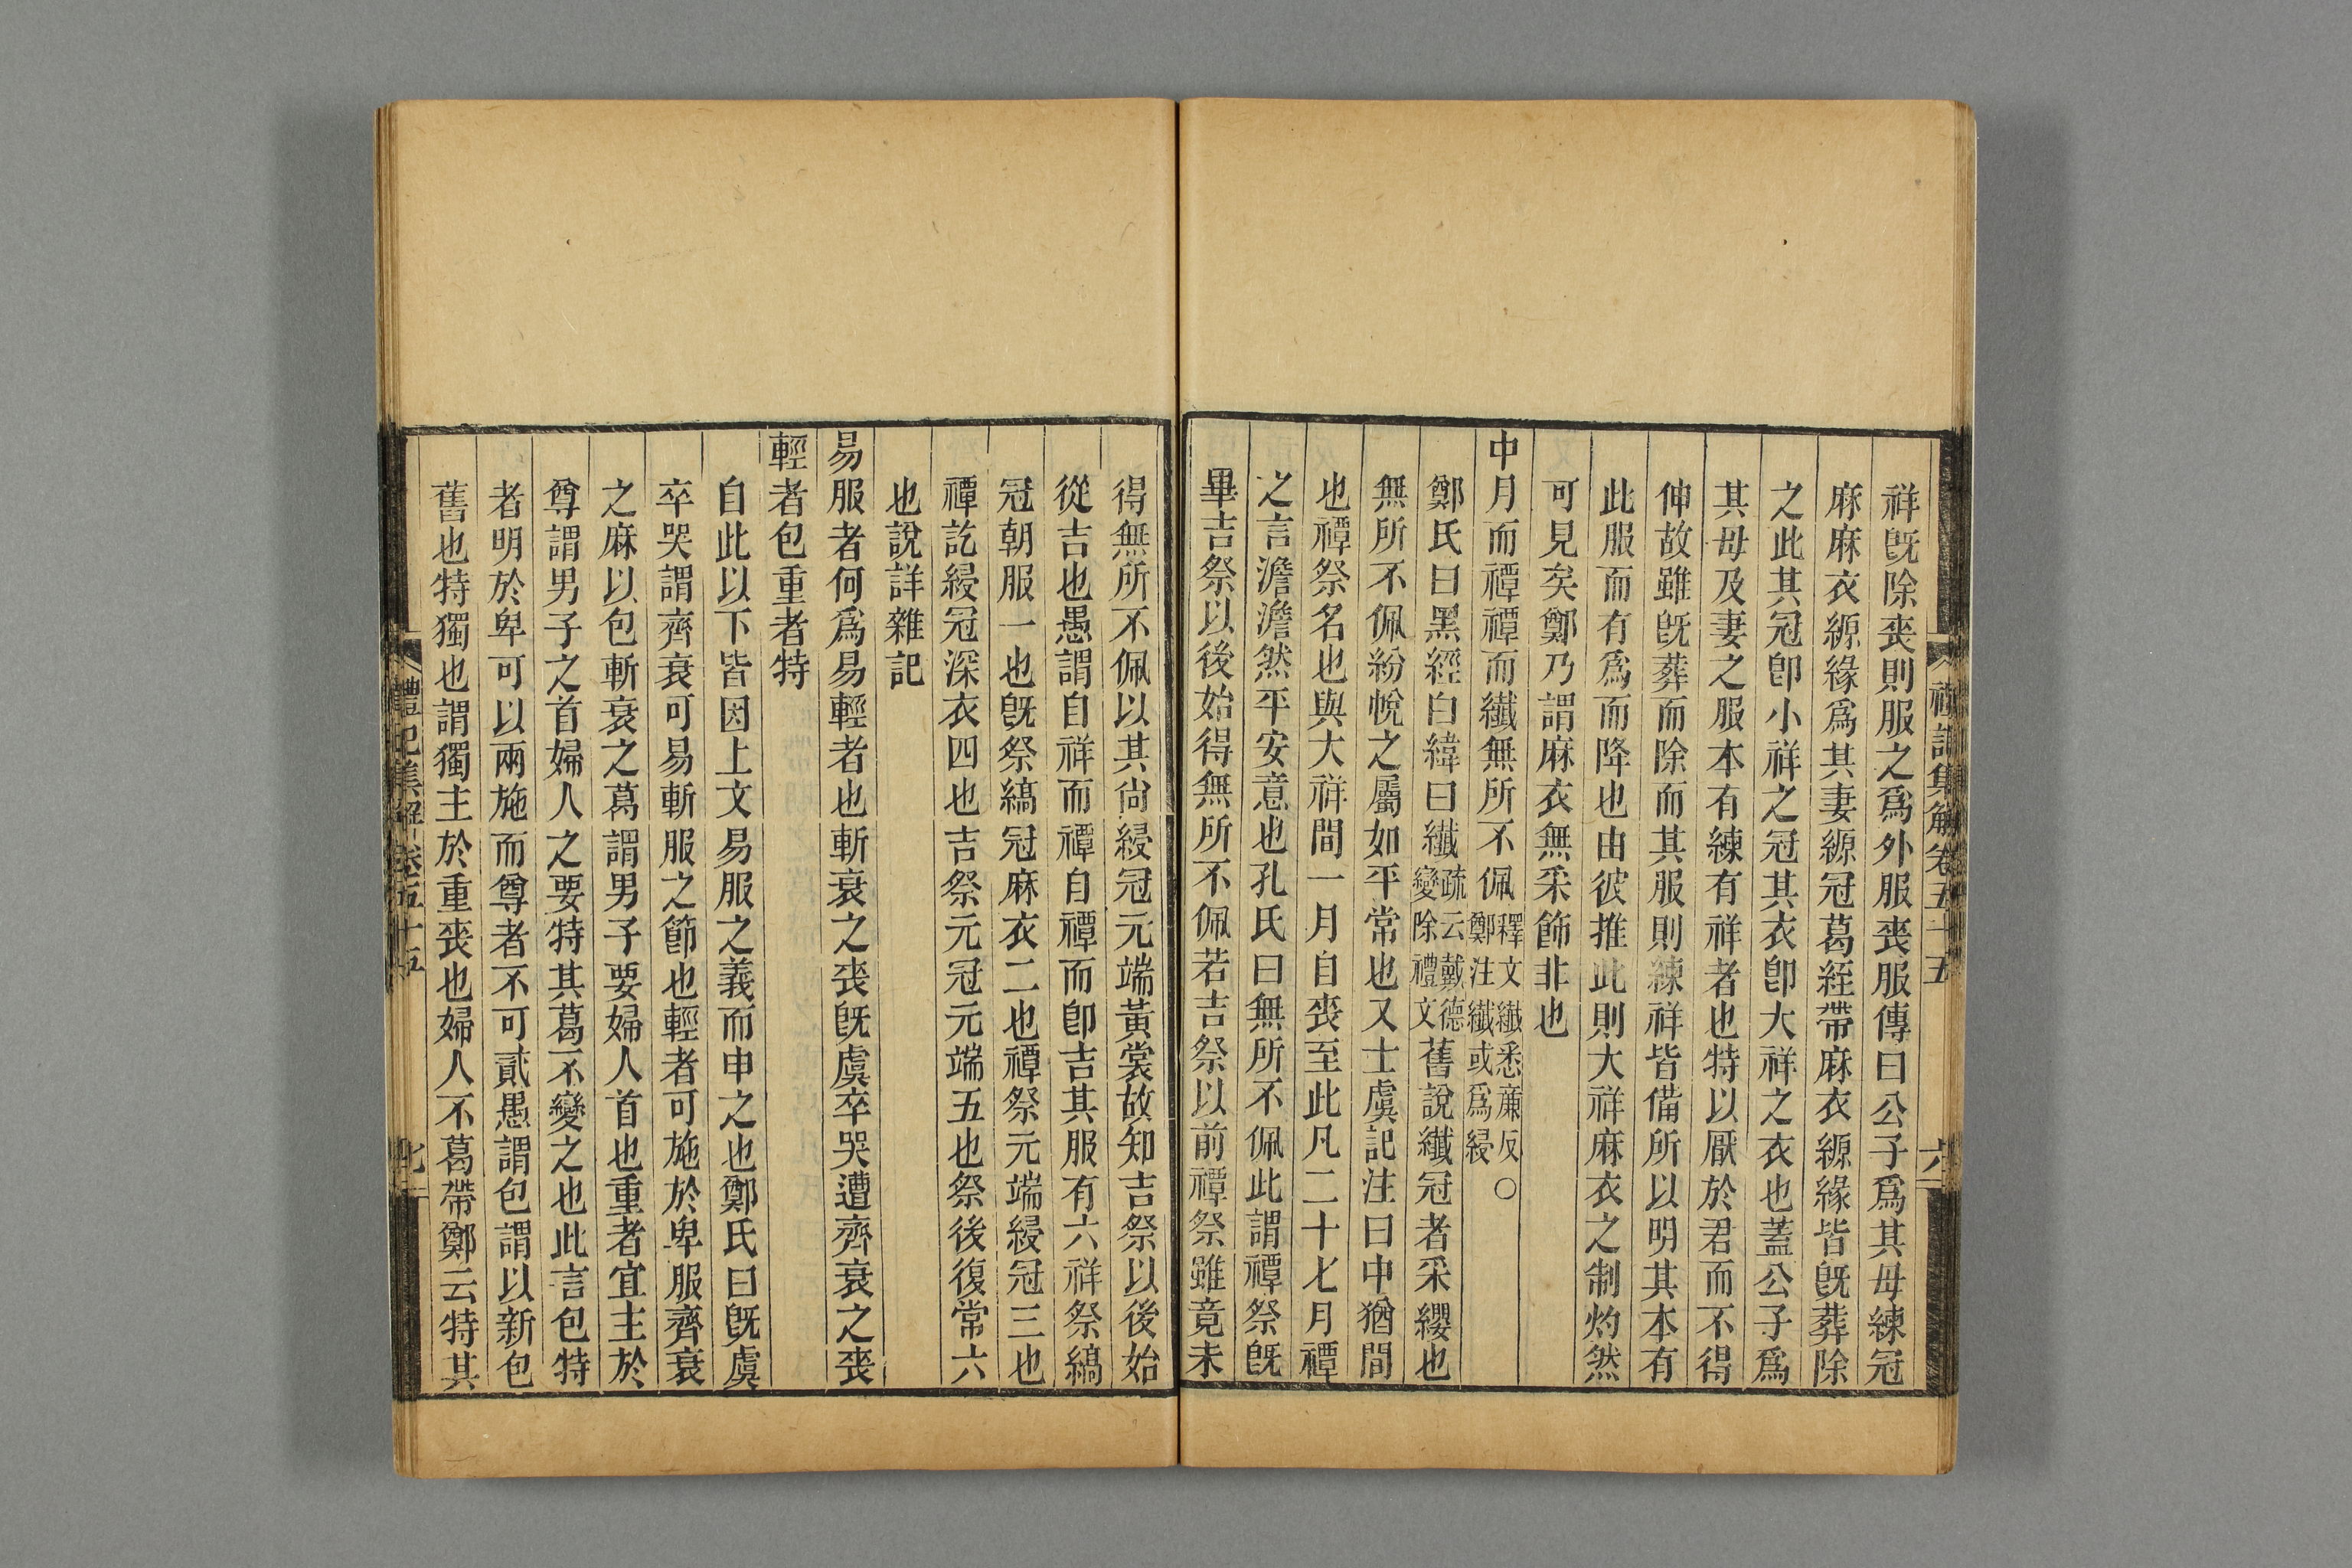 禮記集解卷五十五 六
祥旣除喪則服之爲外服喪服傳曰公子爲其母練冠
麻麻衣縓緣爲其妻縓冠葛絰帶麻衣縓緣皆旣葬除
之此其冠卽小祥之冠其衣卽大祥之衣也蓋公子爲
其母及妻之服本有練有祥者也特以厭於君而不得
伸故雖旣葬而除而其服則練祥皆備所以明其本有
此服而有爲而降也由彼推此則大祥麻衣之制灼然
可見矣鄭乃謂麻衣無采飾非也
中月而禫禫而纖無所不佩釋文纖悉廉反鄭注纖或爲綅○
鄭氏曰黑經白緯曰纖疏云戴德變除禮文舊說纖冠者采纓也
無所不佩紛帨之屬如平常也又士虞記注曰中猶間
也禫祭名也與大祥間一月自喪至此凡二十七月禫
之言澹澹然平安意也孔氏曰無所不佩此謂禫祭旣
畢吉祭以後始得無所不佩若吉祭以前禫祭雖竟未
得無所不佩以其尙綅冠元端黃裳故知吉祭以後始
從吉也愚謂自祥而禫自禫而卽吉其服有六祥祭縞
冠朝服一也旣祭縞冠麻衣二也禫祭元端綅冠三也
禫訖綅冠深衣四也吉祭元冠元端五也祭後復常六
也說詳雜記
易服者何爲易輕者也斬衰之喪旣虞卒哭遭齊衰之喪
輕者包重者特
自此以下皆因上文易服之義而申之也鄭氏曰旣虞
卒哭謂齊衰可易斬服之節也輕者可施於卑服齊衰
之麻以包斬衰之葛謂男子要婦人首也重者宜主於
尊謂男子之首婦人之要特其葛不變之也此言包特
者明於卑可以兩施而尊者不可貳愚謂包謂以新包
舊也特獨也謂獨主於重喪也婦人不葛帶鄭云特其
禮記集解卷五十五